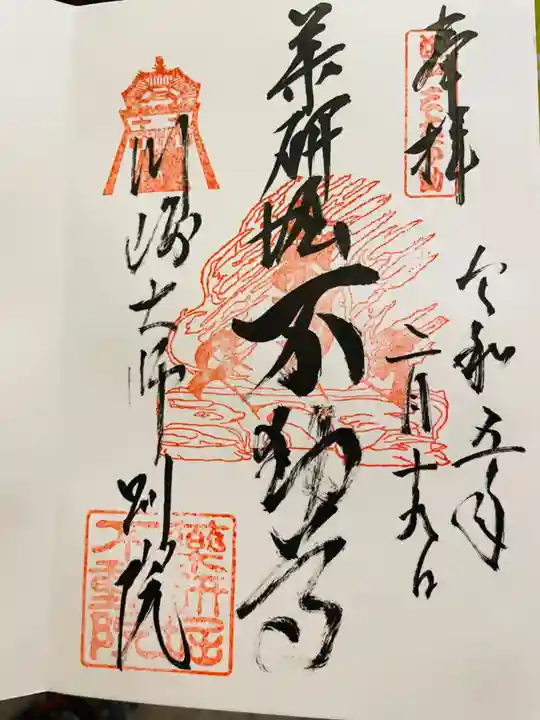 奉拝
令和五年
二月十九日
薬研堀不動尊
川崎大師別院
薬研堀
不動院